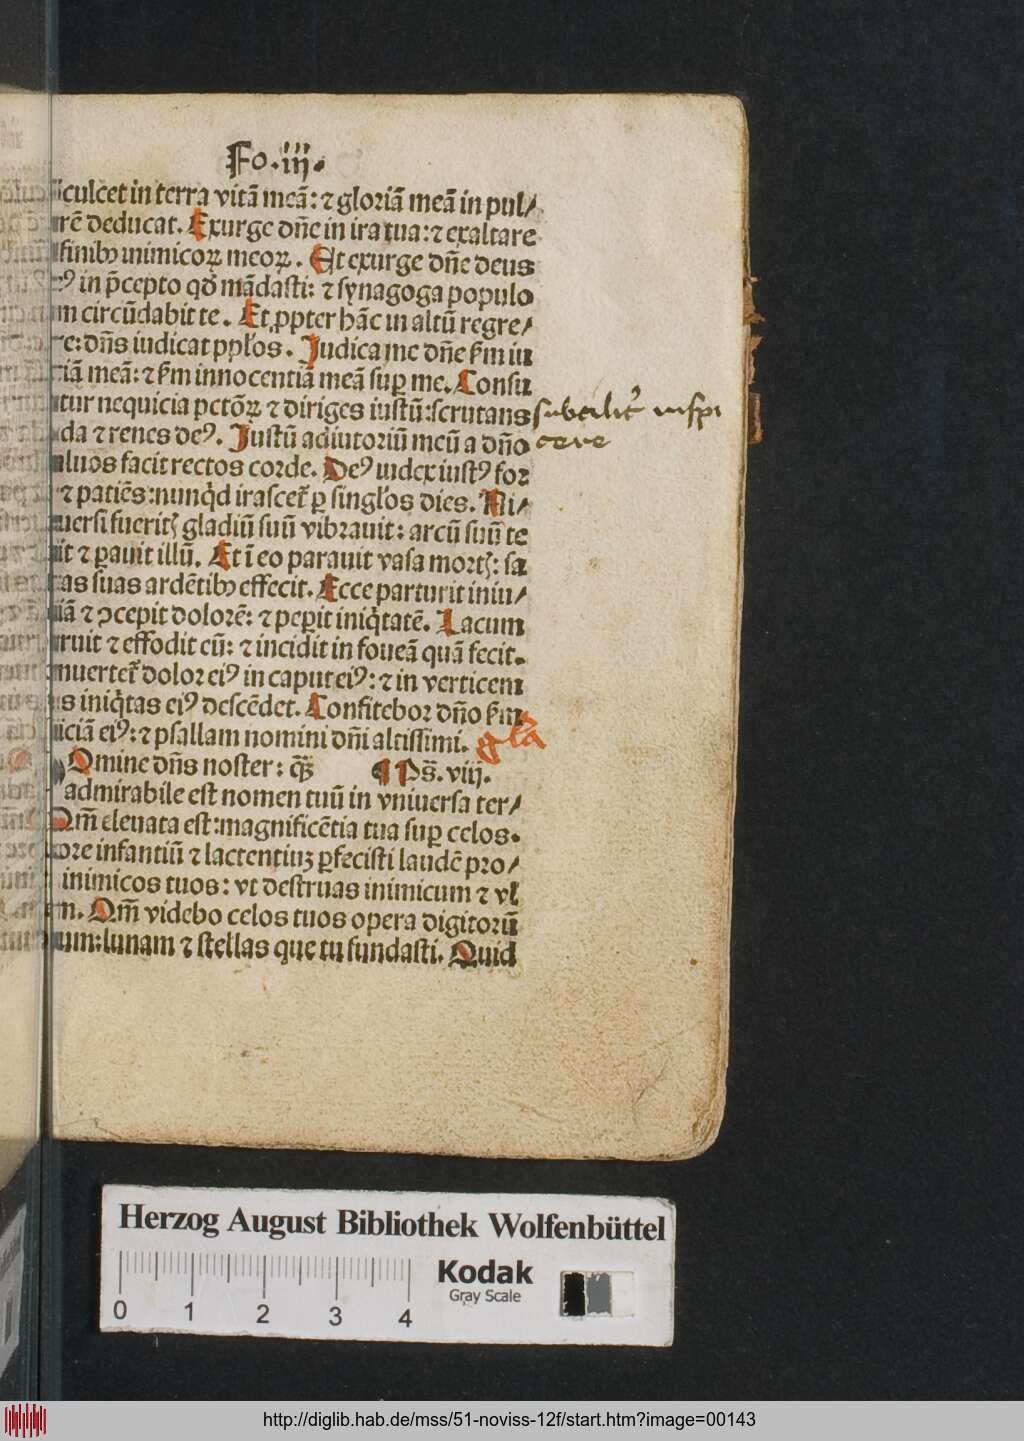 Fo.iij.
culcet in terra vitã meã: ⁊ gloriã meã in pul/
rẽ deducat. Exurge dñe in ira tua: ⁊ exaltare
finibꝰ inimicoꝝ meoꝝ. Et exurge dñe deus
ꝰ in p̃cepto qđ mãdasti: ⁊ synagoga populo
m circũdabit te. Et ꝓpter hãc in altũ regre/
e: dñs iudicat pp̃los. Judica me dñe ẜm iu
iã meã: ⁊ ẜm innocentiã meã suꝑ me. Consu
tur nequicia pctõꝝ ⁊ diriges iustũ: scrutans
da ⁊ renes deꝰ. Justũ adiutoriũ meũ a dño
luos facit rectos corde. Deꝰ iudex iustꝰ for
⁊ patiẽs: nunq̇d irascet̃ ꝑ singl'os dies. Ni/
uersi fueritꝭ gladiũ suũ vibrauit: arcũ suũ te
it ⁊ ꝑauit illũ. Et ĩ eo parauit vasa mortꝭ: sa
as suas ardẽtibꝰ effecit. Ecce parturit iniu/
iã ⁊ ꝯcepit dolorẽ: ⁊ peꝑit iniq̇tatẽ. Lacum
ruit ⁊ effodit eũ: ⁊ incidit in foueã quã fecit.
nuertet̃ dolor eiꝰ in caput eiꝰ: ⁊ in verticem
s iniq̇tas eiꝰ descẽdet. Confitebor dño ẜm
iciã eiꝰ: ⁊ psallam nomini dñi altissimi. gl̃a
Domine dñs noster: q̃ȝ ¶ Ps̃. viij.
admirabile est nomen tuũ in vniuersa ter/
Qm̃ eleuata est: magnificẽtia tua suꝑ celos.
ore infantiũ ⁊ lactentiuȝ ꝑfecisti laudẽ pro/
inimicos tuos: vt destruas inimicum ⁊ vl
m. Qm̃ videbo celos tuos opera digitorũ
um: lunam ⁊ stellas que tu fundasti. Quid
subtilit̃ inspi
cere
Herzog August Bibliothek Wolfenbüttel
0 1 2 3 4
Kodak
Gray Scale
http://diglib.hab.de/mss/51-noviss-12f/start.htm?image=00143